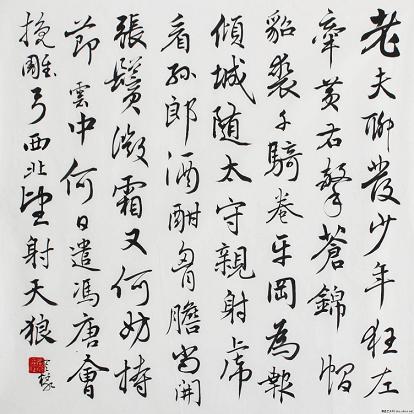 老夫聊發少年狂左
牽黃右擎蒼錦帽
貂裘千騎卷平岡為報
傾城隨太守親射虎
看孫郎酒酣胸膽尚開
張鬢微霜又何妨持
節雲中何日遣馮唐會
挽雕弓西北望射天狼